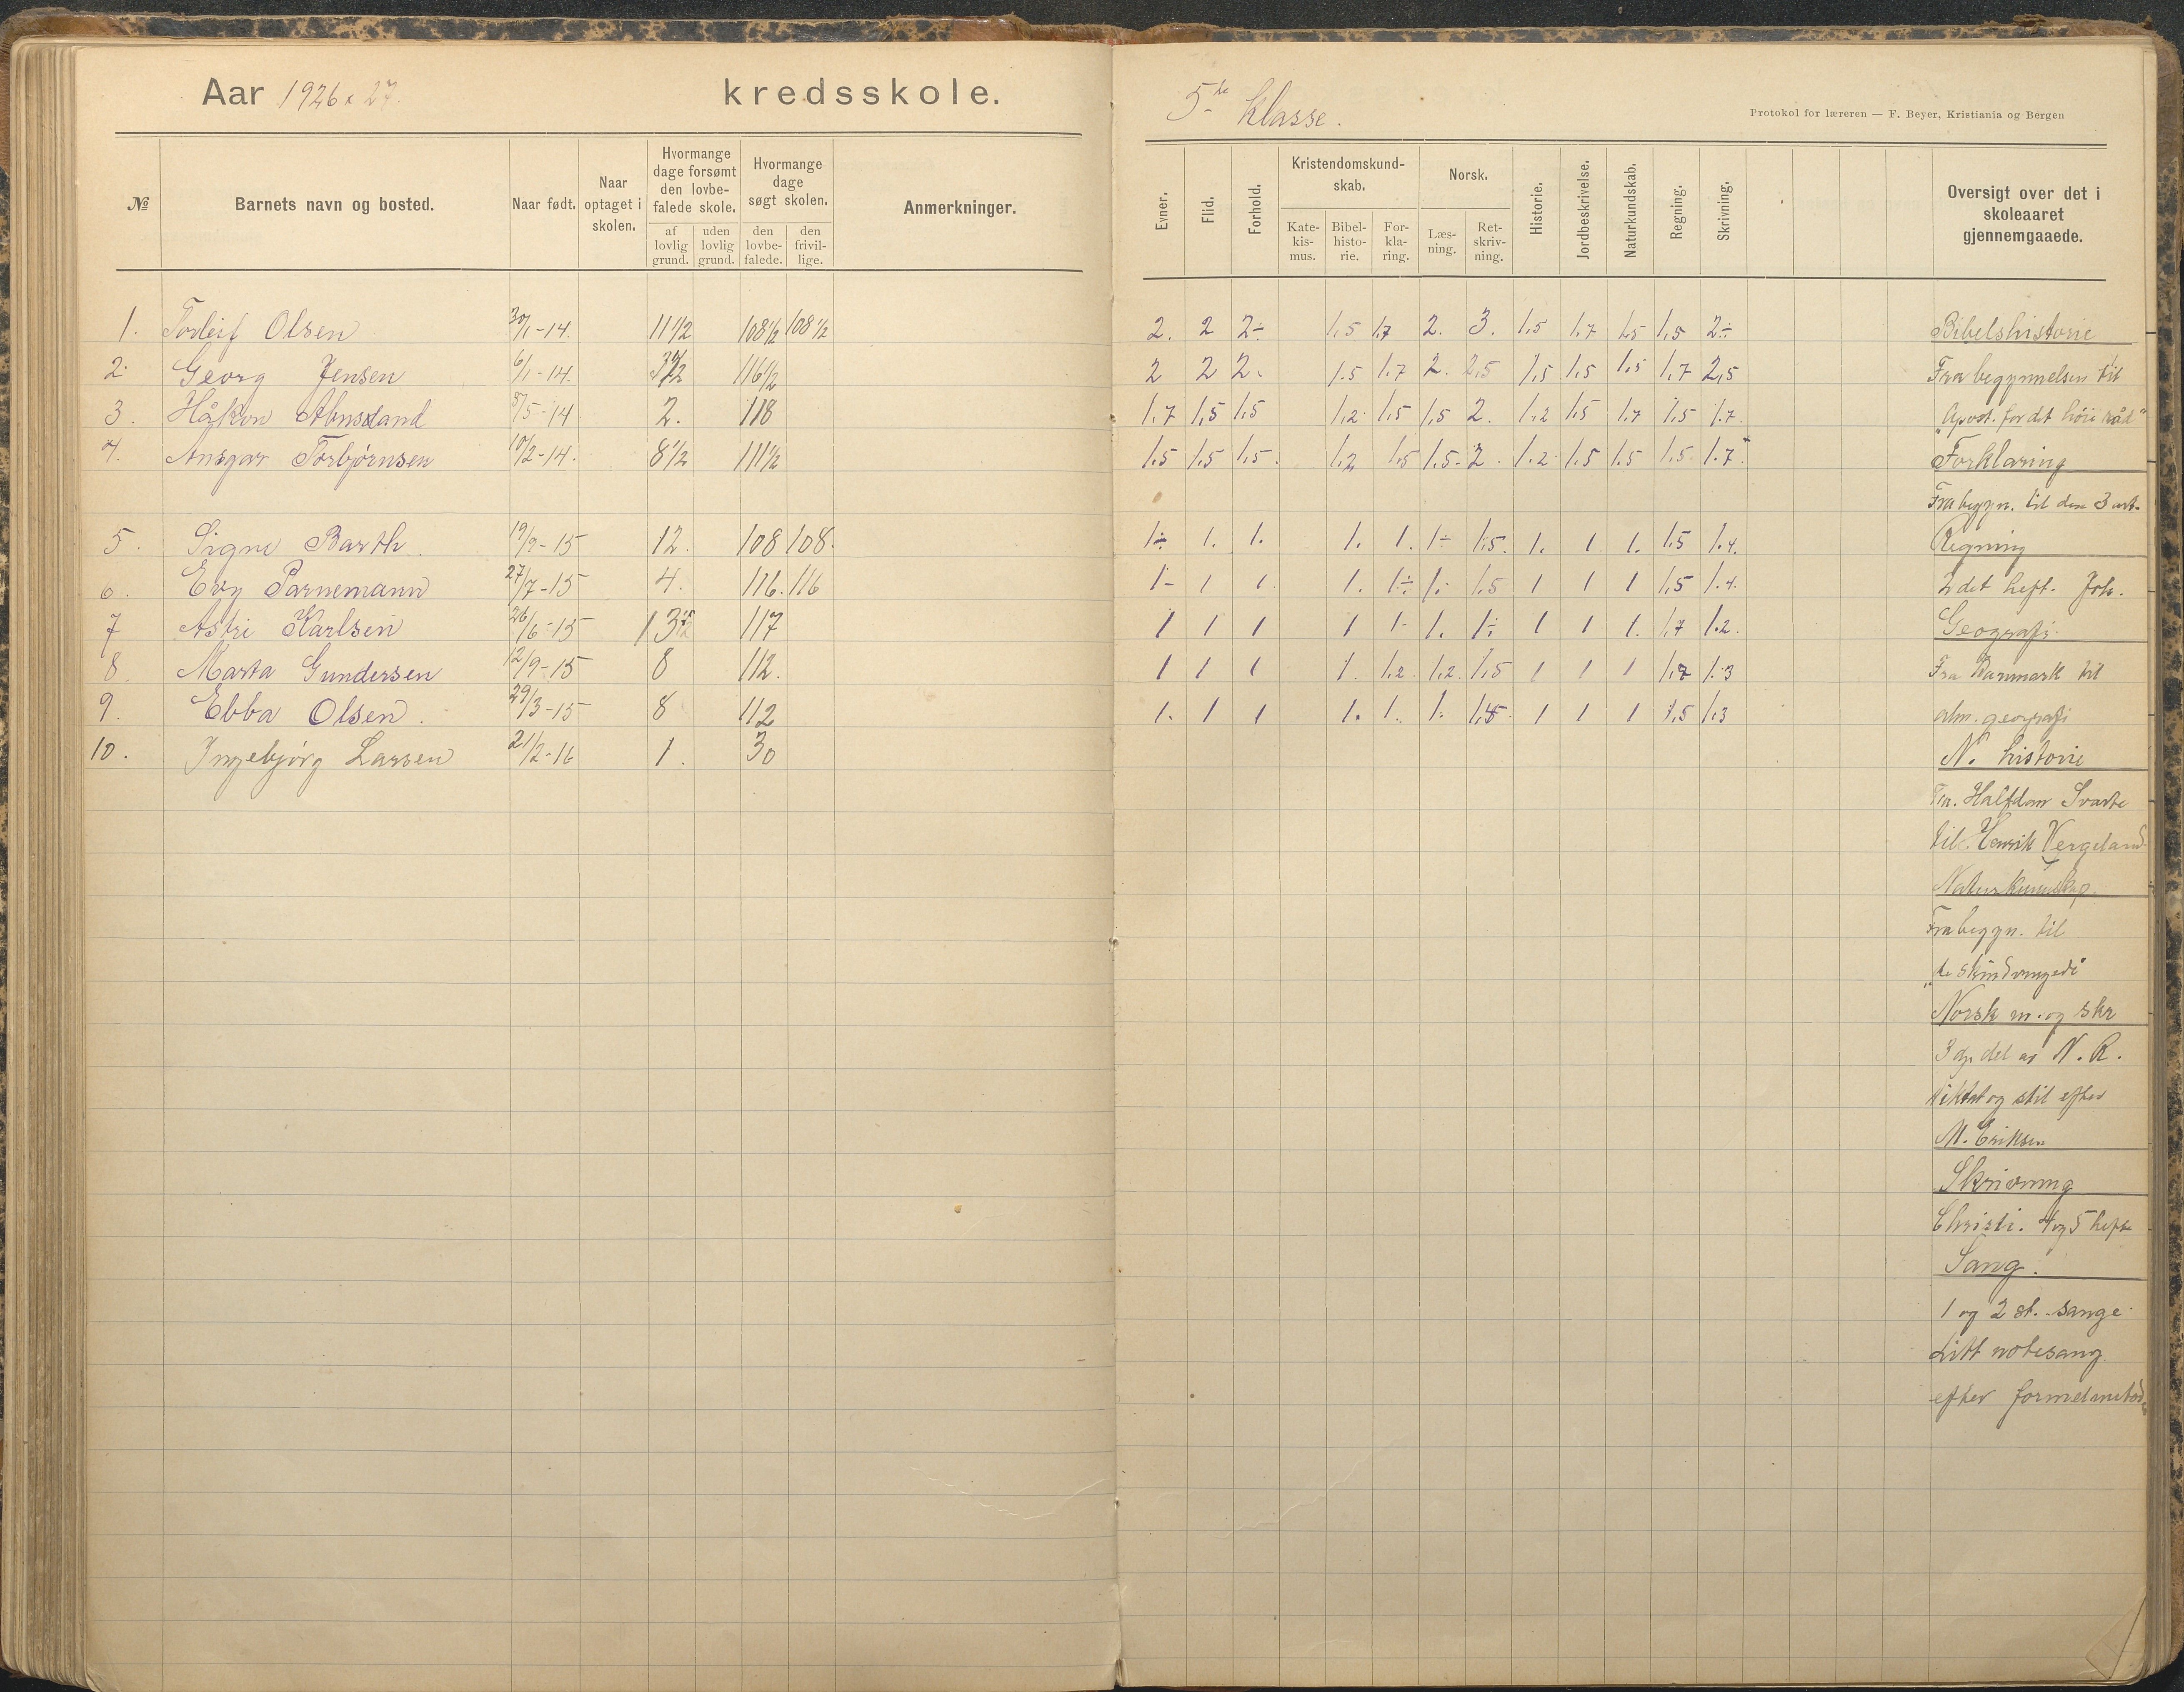 Aar 1926 & 27. kredsskole.
№ Barnets navn og bosted. Naar født. Naar optaget i skolen. Hvormange dage forsømt den lovbefalede skole. af lovlig grund. uden lovlig grund. Hvormange dage søgt skolen. den lovbefalede. den frivillige. Anmerkninger.
1. Torleif Olsen 30/1-14. 11 1/2 108 1/2 108 1/2
2. Georg Jensen 6/1-14. 116 1/2
3. Håkon 8/5-14 2. 118
4. Ansgar Torbjørnsen 10/2-14. 8 1/2 111 1/2
5. Signe Barth. 19/9-15 12. 108 108.
6. Evy Parnemann 27/7-15 4. 116. 116
7 Astri Karlsen 26/6-15 117
8. Marta Gundersen 12/9-15 8 112.
9. Ebba Olsen. 29/3-15 8 112
10. Ingebjørg Larsen 21/2-16 1. 30
5te klasse.
Protokol for læreren — F. Beyer, Kristiania og Bergen
Evner. Flid. Forhold. Kristendomskundskab. Katekismus. Bibelhistorie. Forklaring. Norsk. Læsning. Retskrivning. Historie. Jordbeskrivelse. Naturkundskab. Regning. Skrivning. Oversigt over det i skoleaaret gjennemgaaede.
2. 2 2÷ 1.5 1.7 2. 3. 1.5 1.7 1.5 1.5 2÷
2 2 2. 1.5 1.7 2. 2.5 1.5 1.5 1.5 1.7 2,5
1.7 1,5 1.5 1.2 1.5 1,5 2. 1.2 1.5 1.7 1.5 1.7.
1.5 1.5 1.5. 1.2 1.5 1.5. 2. 1.2 1.5 1.5 1.5 1.7.
1÷ 1. 1. 1. 1. 1÷ 1.5. 1. 1 1. 1.5 1.4.
1- 1 1. 1. 1÷ 1. 1.5 1 1 1 1,5 1.4.
1 1 1 1 1- 1. 1÷ 1 1 1. 1.7 1.2.
1 1 1 1. 1.2. 1.2. 1.5 1 1 1 1.7 1.3
1. 1 1 1. 1. 1. 1 1 1 1.5 1.3
Bibelshistorie
Fra begynnelsen til
„Apost. for det høie råd"
Forklaring
Fra begyn. til den 3 art.
Regning
2det heft. Joh.
Geografi.
Fra Danmark til
alm. geografi
N. historie
Fra. Halfdan Svarte
til Henrik Vergeland
Naturkunnskap.
Fra begyn. til
„de skindvingede"
Norsk m. og skr
3dje del av N. R.
diktat og stil efter
M. Eriksen
Skrivning
Christi. 4 og 5 hefte
Sang.
1 og 2 st. sange
Litt notesang
efter formelmetod